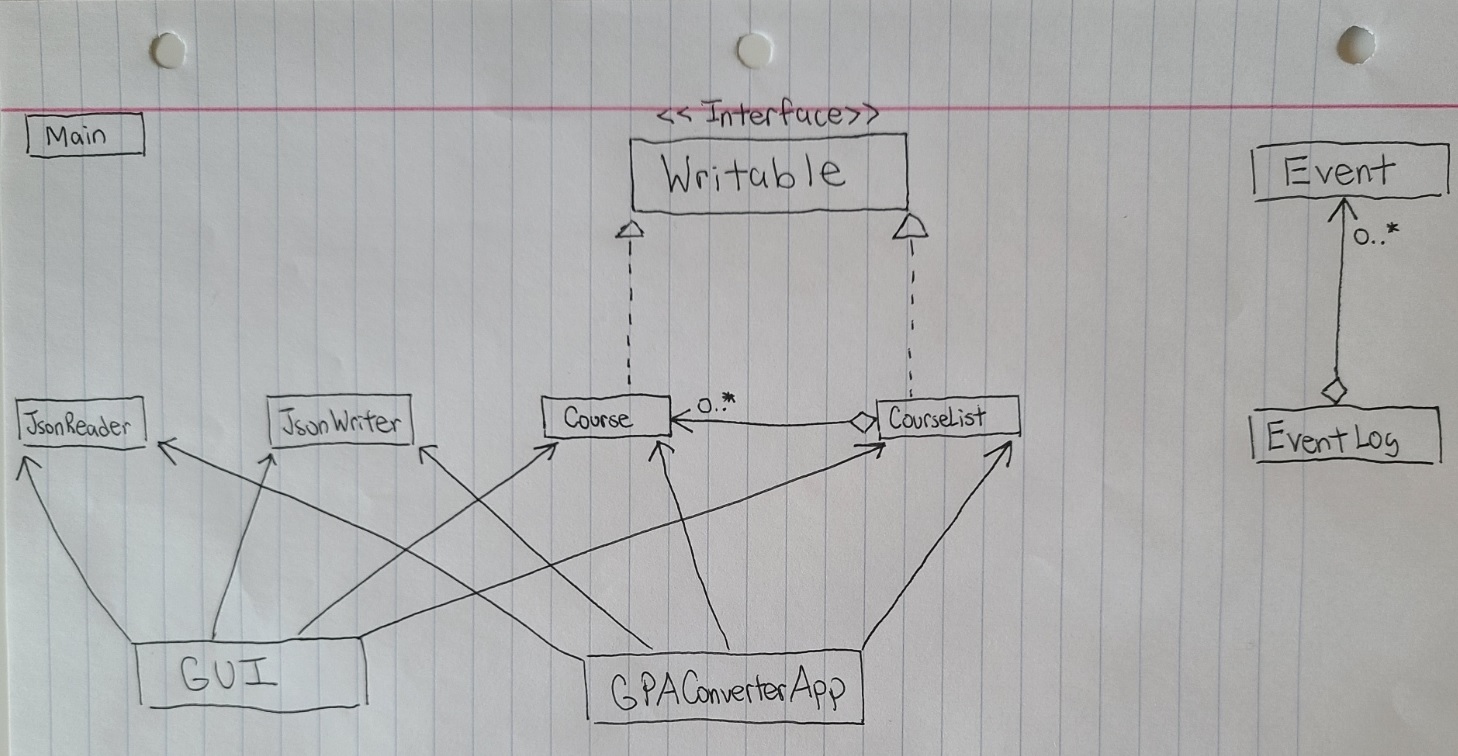 << Interface>>
Main
Writable
Event
0..*
JsonReader
JsonWriter
Course
0..*
CourseList
EventLog
GUI
GPAConverterApp